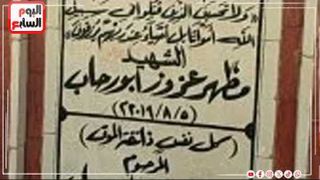 اليوم السابع
ولا تحسبن الذين قتلوا فى سبيل
الله أمواتا بل أحياء عند ربهم يرزقون
الشهيد
مظهر عزوز ابورحاب
(٢٠١٩/٨/٥)
(كل نفس ذائقة الموت)
المرحوم